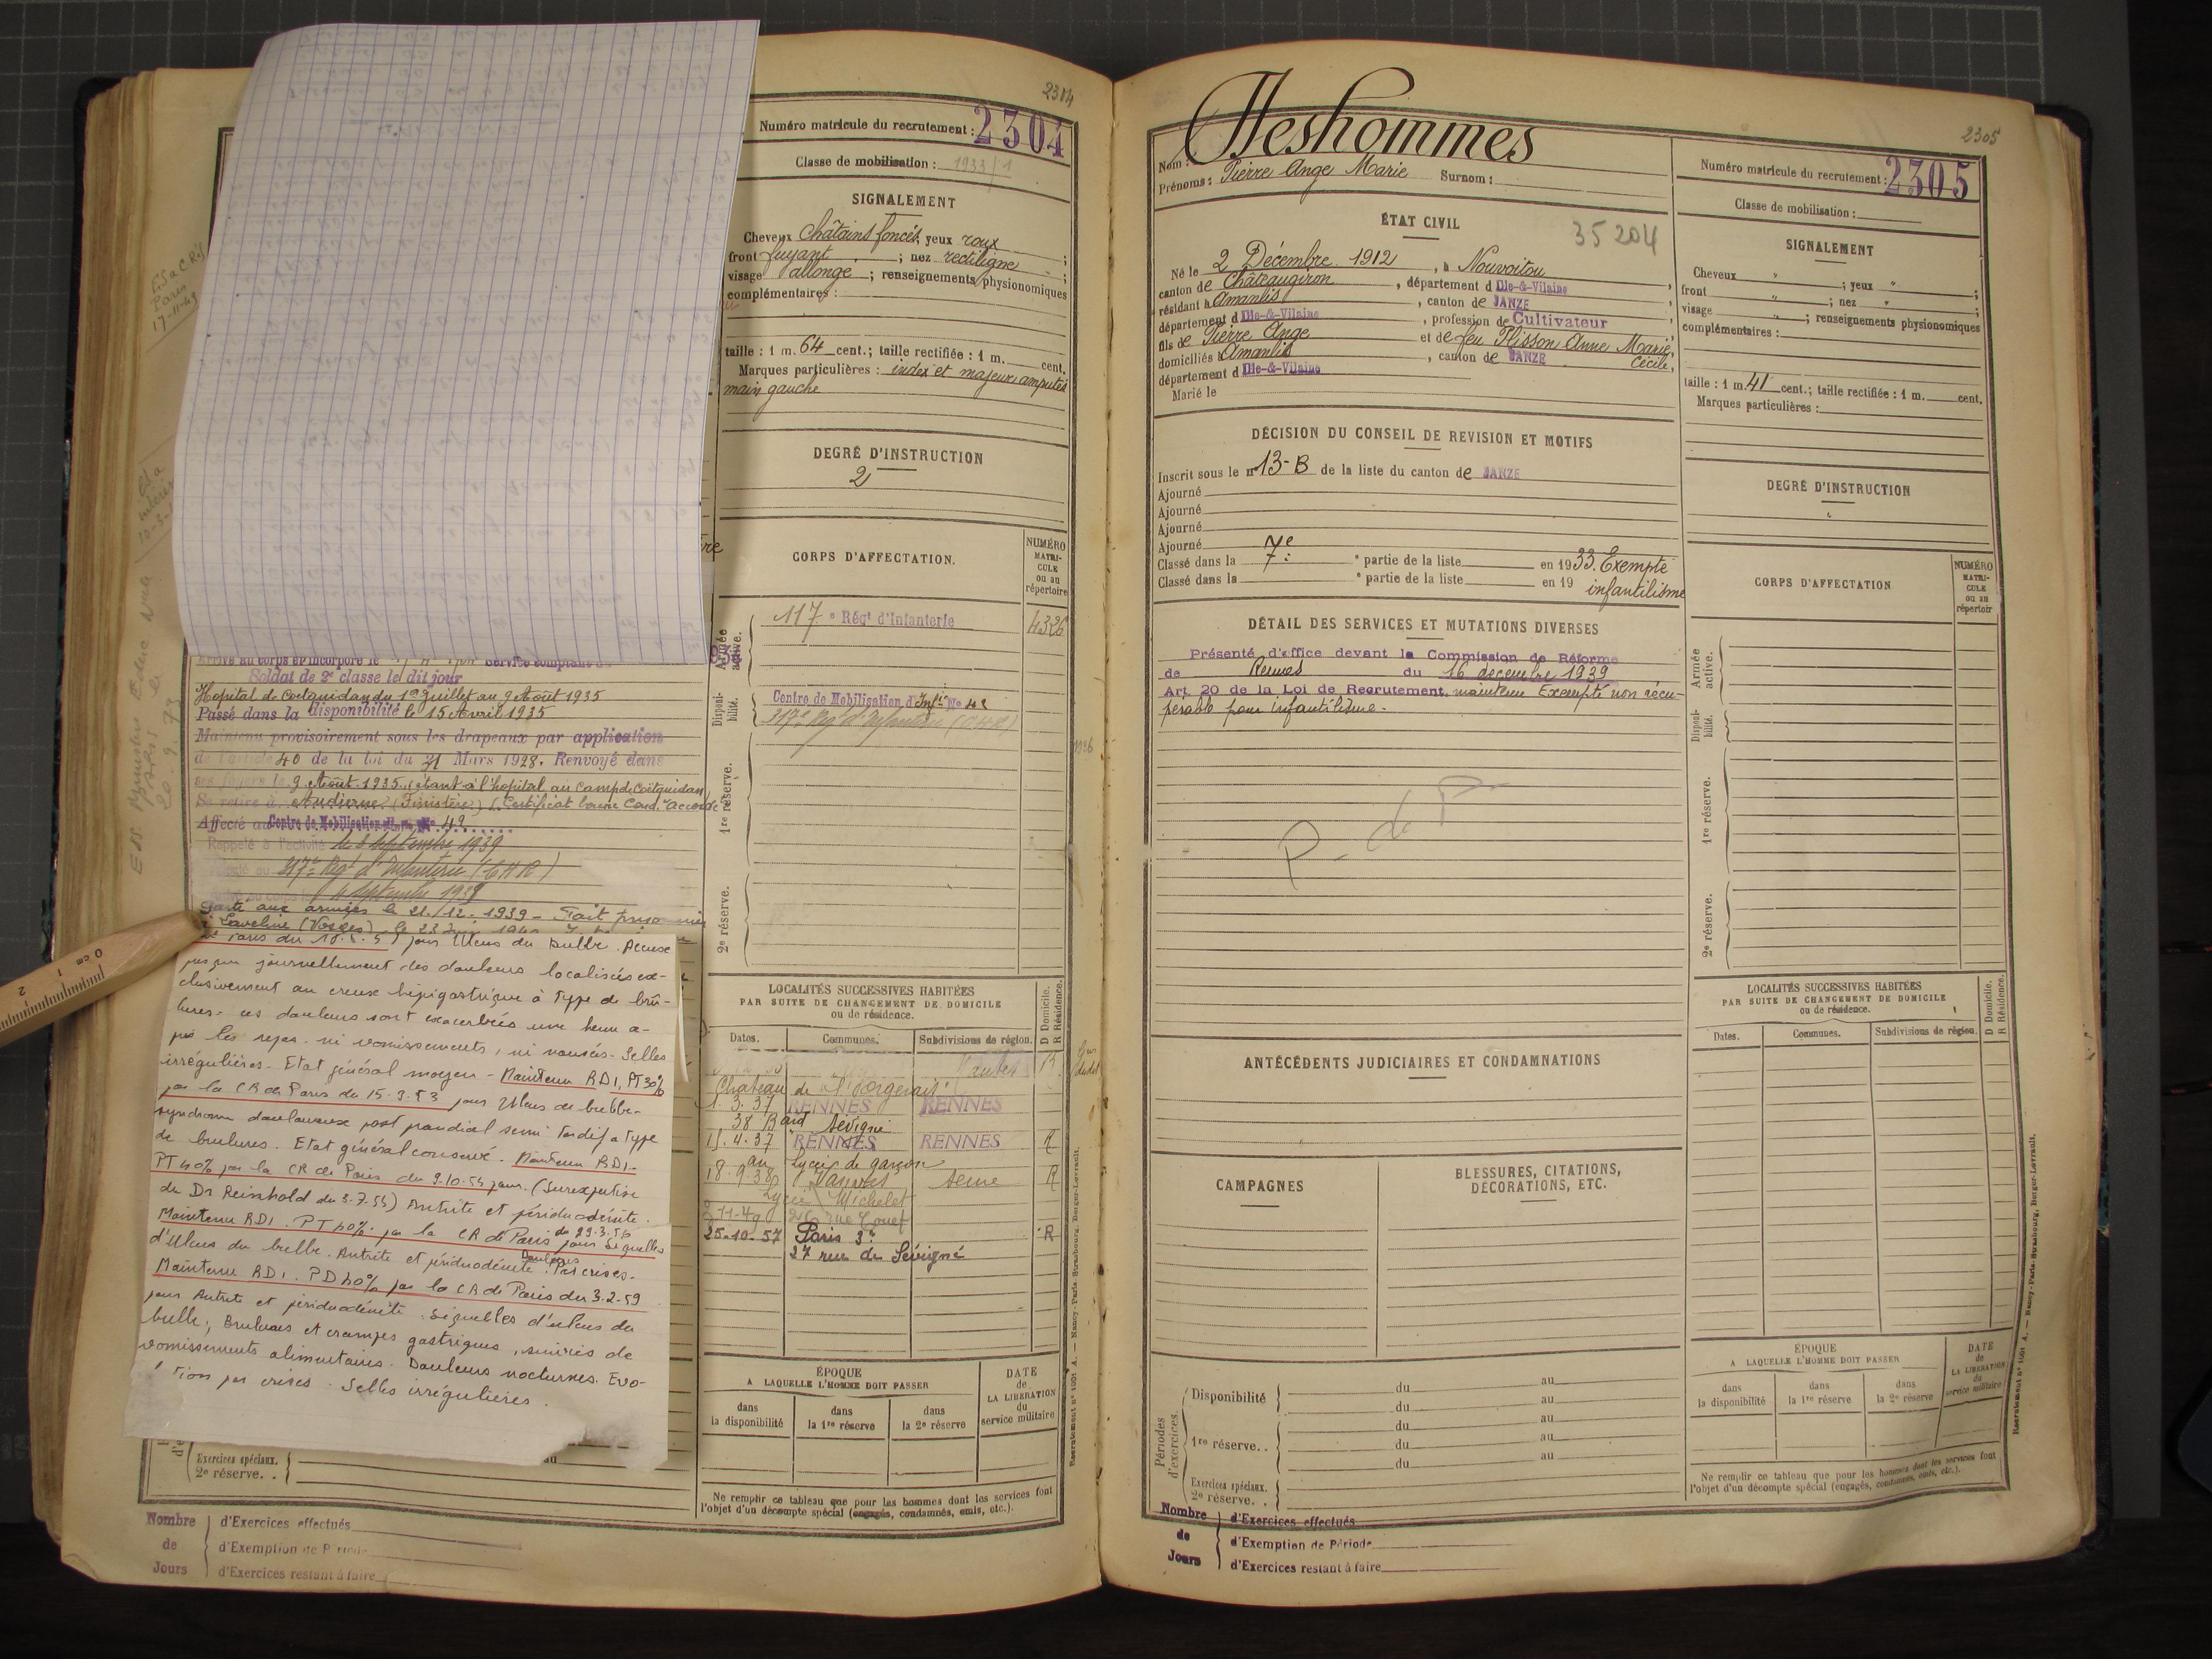 2304
Numéro matricule du recrutement : 2304
Classe de mobilisation : 1933/1
SIGNALEMENT
Cheveux Châtains foncés, yeux roux
front fuyant ; nez rectiligne ;
visage allongé ; renseignements physionomiques
complémentaires :
taille : 1 m. 64 cent.; taille rectifiée : 1 m. cent.
Marques particulières : index et majeur amputés
main gauche
DEGRÉ D'INSTRUCTION
2
CORPS D'AFFECTATION.
NUMÉRO
MATRI-
CULE
ou au
répertoire
Armée
active.
117e Régt d'Infanterie
4326
Disponi-
bilité.
Centre de Mobilisation d'Infie No 42
317e Rég d'Infanterie (CHR)
1re réserve.
2e réserve.
E.S a C.Réf
Paris
17-11-49
Soldat de 2e classe le dit jour
Hopital de Coëtquidan du 1er Juillet au 9 Août 1935
Passé dans la disponibilité le 15 Avril 1935
Maintenu provisoirement sous les drapeaux par application
de l'article 40 de la loi du 31 Mars 1928. Renvoyé dans
ses foyers le 9 Août 1935. étant à l'hopital au camp de Coëtquidan
Se retire à Audierne (Finistère) Certificat bonne Cond. accordé
Affecté au Centre de Mobilisation No 42
Rappelé à l'activité le 3 septembre 1939
317e Régt d'Infanterie (CHR)
septembre 1939
Parti aux armées le 21/12/1939 - Fait prisonnier
Laveline (Vosges) le 23
Paris du pour Ulcus du bulbe. Accuse
presque journellement des douleurs localisées ex-
clusivement au creux épigastrique à type de brû-
lures. ces douleurs sont exacerbées une heure a-
près les repas. ni vomissements, ni nausées. Selles
irrégulières. Etat général moyen - Maintenu RD1, PT 30%
par la CR de Paris du 15.3.53 pour Ulcus du bulbe.
syndrome douloureux post prandial semi tardif a type
de brulures. Etat général conservé. Maintenu RD1.
PT 40% par la CR de Paris du 9.10.55 pour. (Surexpertise
du Dr Reinhold du 3.7.55) Antrite et périduodénite.
Maintenu RD1. PT 40% par la CR de Paris du 29.3.56 pour Séquelles
d'Ulcus du bulbe. Antrite et périduodénite. Douleurs Par crises.
Maintenu RD1. PD 40% par la CR de Paris du 3.2.59
pour Antrite et périduodénite. Séquelles d'ulcus du
bulbe; Brulures et crampes gastriques, suivies de
vomissements alimentaires. Douleurs nocturnes. Evo-
lution par crises. Selles irrégulières.
LOCALITÉS SUCCESSIVES HABITÉES
PAR SUITE DE CHANGEMENT DE DOMICILE
ou de résidence.
D Domicile.
R Résidence.
Dates. Communes. Subdivisions de région.
Nantes R
Chateau de
1.3.37 RENNES RENNES
38 Bard Sévigné
15.4.37 RENNES RENNES R
au Lycée de garçon
18.9.38 Vanves Seine R
Lycée Michelet
25-10-57 Paris 3e R
27 rue de Sévigné
ÉPOQUE
A LAQUELLE L'HOMME DOIT PASSER
dans
la disponibilité
dans
la 1re réserve
dans
la 2e réserve
DATE
de
LA LIBÉRATION
du
service militaire
Exercices spéciaux.
2e réserve. .
Ne remplir ce tableau que pour les hommes dont les services font
l'objet d'un décompte spécial (engagés, condamnés, omis, etc.).
Nombre
de
Jours
d'Exercices effectués
d'Exemption de Période
d'Exercices restant à faire
2305
Nom : Deshommes
Prénoms : Pierre Ange Marie Surnom :
Numéro matricule du recrutement : 2305
Classe de mobilisation :
ÉTAT CIVIL
35204
Né le 2 Décembre 1912, à Nouvoitou
canton de Châteaugiron, département d'Ille-&-Vilaine,
résidant à Amanlis, canton de JANZE
département d'Ille-&-Vilaine, profession de Cultivateur
fils de Pierre Ange et de feu Plisson Anne Marie,
Cécile,
domiciliés à Amanlis, canton de JANZE
département d'Ille-&-Vilaine
Marié le
SIGNALEMENT
Cheveux " ; yeux "
front " ; nez " ;
visage " ; renseignements physionomiques
complémentaires :
taille : 1 m. 41 cent.; taille rectifiée : 1 m. cent.
Marques particulières :
DÉCISION DU CONSEIL DE REVISION ET MOTIFS
Inscrit sous le no 13-B de la liste du canton de JANZE
Ajourné
Ajourné
Ajourné
Ajourné
Classé dans la 7e partie de la liste en 1933. Exempté
Classé dans la e partie de la liste en 19 infantilisme
DEGRÉ D'INSTRUCTION
CORPS D'AFFECTATION
NUMÉRO
MATRI-
CULE
ou au
répertoir
Armée
active.
Disponi-
bilité.
1re réserve.
2e réserve.
DÉTAIL DES SERVICES ET MUTATIONS DIVERSES
Présenté d'office devant la Commission de Réforme
de Rennes du 16 decembre 1939
Art 20 de la Loi de Recrutement, maintenu Exempté non récu-
pérable pour infantilisme.
P. d P
ANTÉCÉDENTS JUDICIAIRES ET CONDAMNATIONS
CAMPAGNES
BLESSURES, CITATIONS,
DÉCORATIONS, ETC.
LOCALITÉS SUCCESSIVES HABITÉES
PAR SUITE DE CHANGEMENT DE DOMICILE
ou de résidence.
D Domicile.
R Résidence.
Dates. Communes. Subdivisions de région.
Périodes
d'exercices.
Disponibilité du au
du au
1re réserve. . du au
du au
du au
Exercices spéciaux.
2e réserve. .
ÉPOQUE
A LAQUELLE L'HOMME DOIT PASSER
dans
la disponibilité
dans
la 1re réserve
dans
la 2e réserve
DATE
de
LA LIBÉRATION
du
service militaire
Ne remplir ce tableau que pour les hommes dont les services font
l'objet d'un décompte spécial (engagés, condamnés, omis, etc.).
Nombre
de
Jours
d'Exercices effectués
d'Exemption de Période
d'Exercices restant à faire